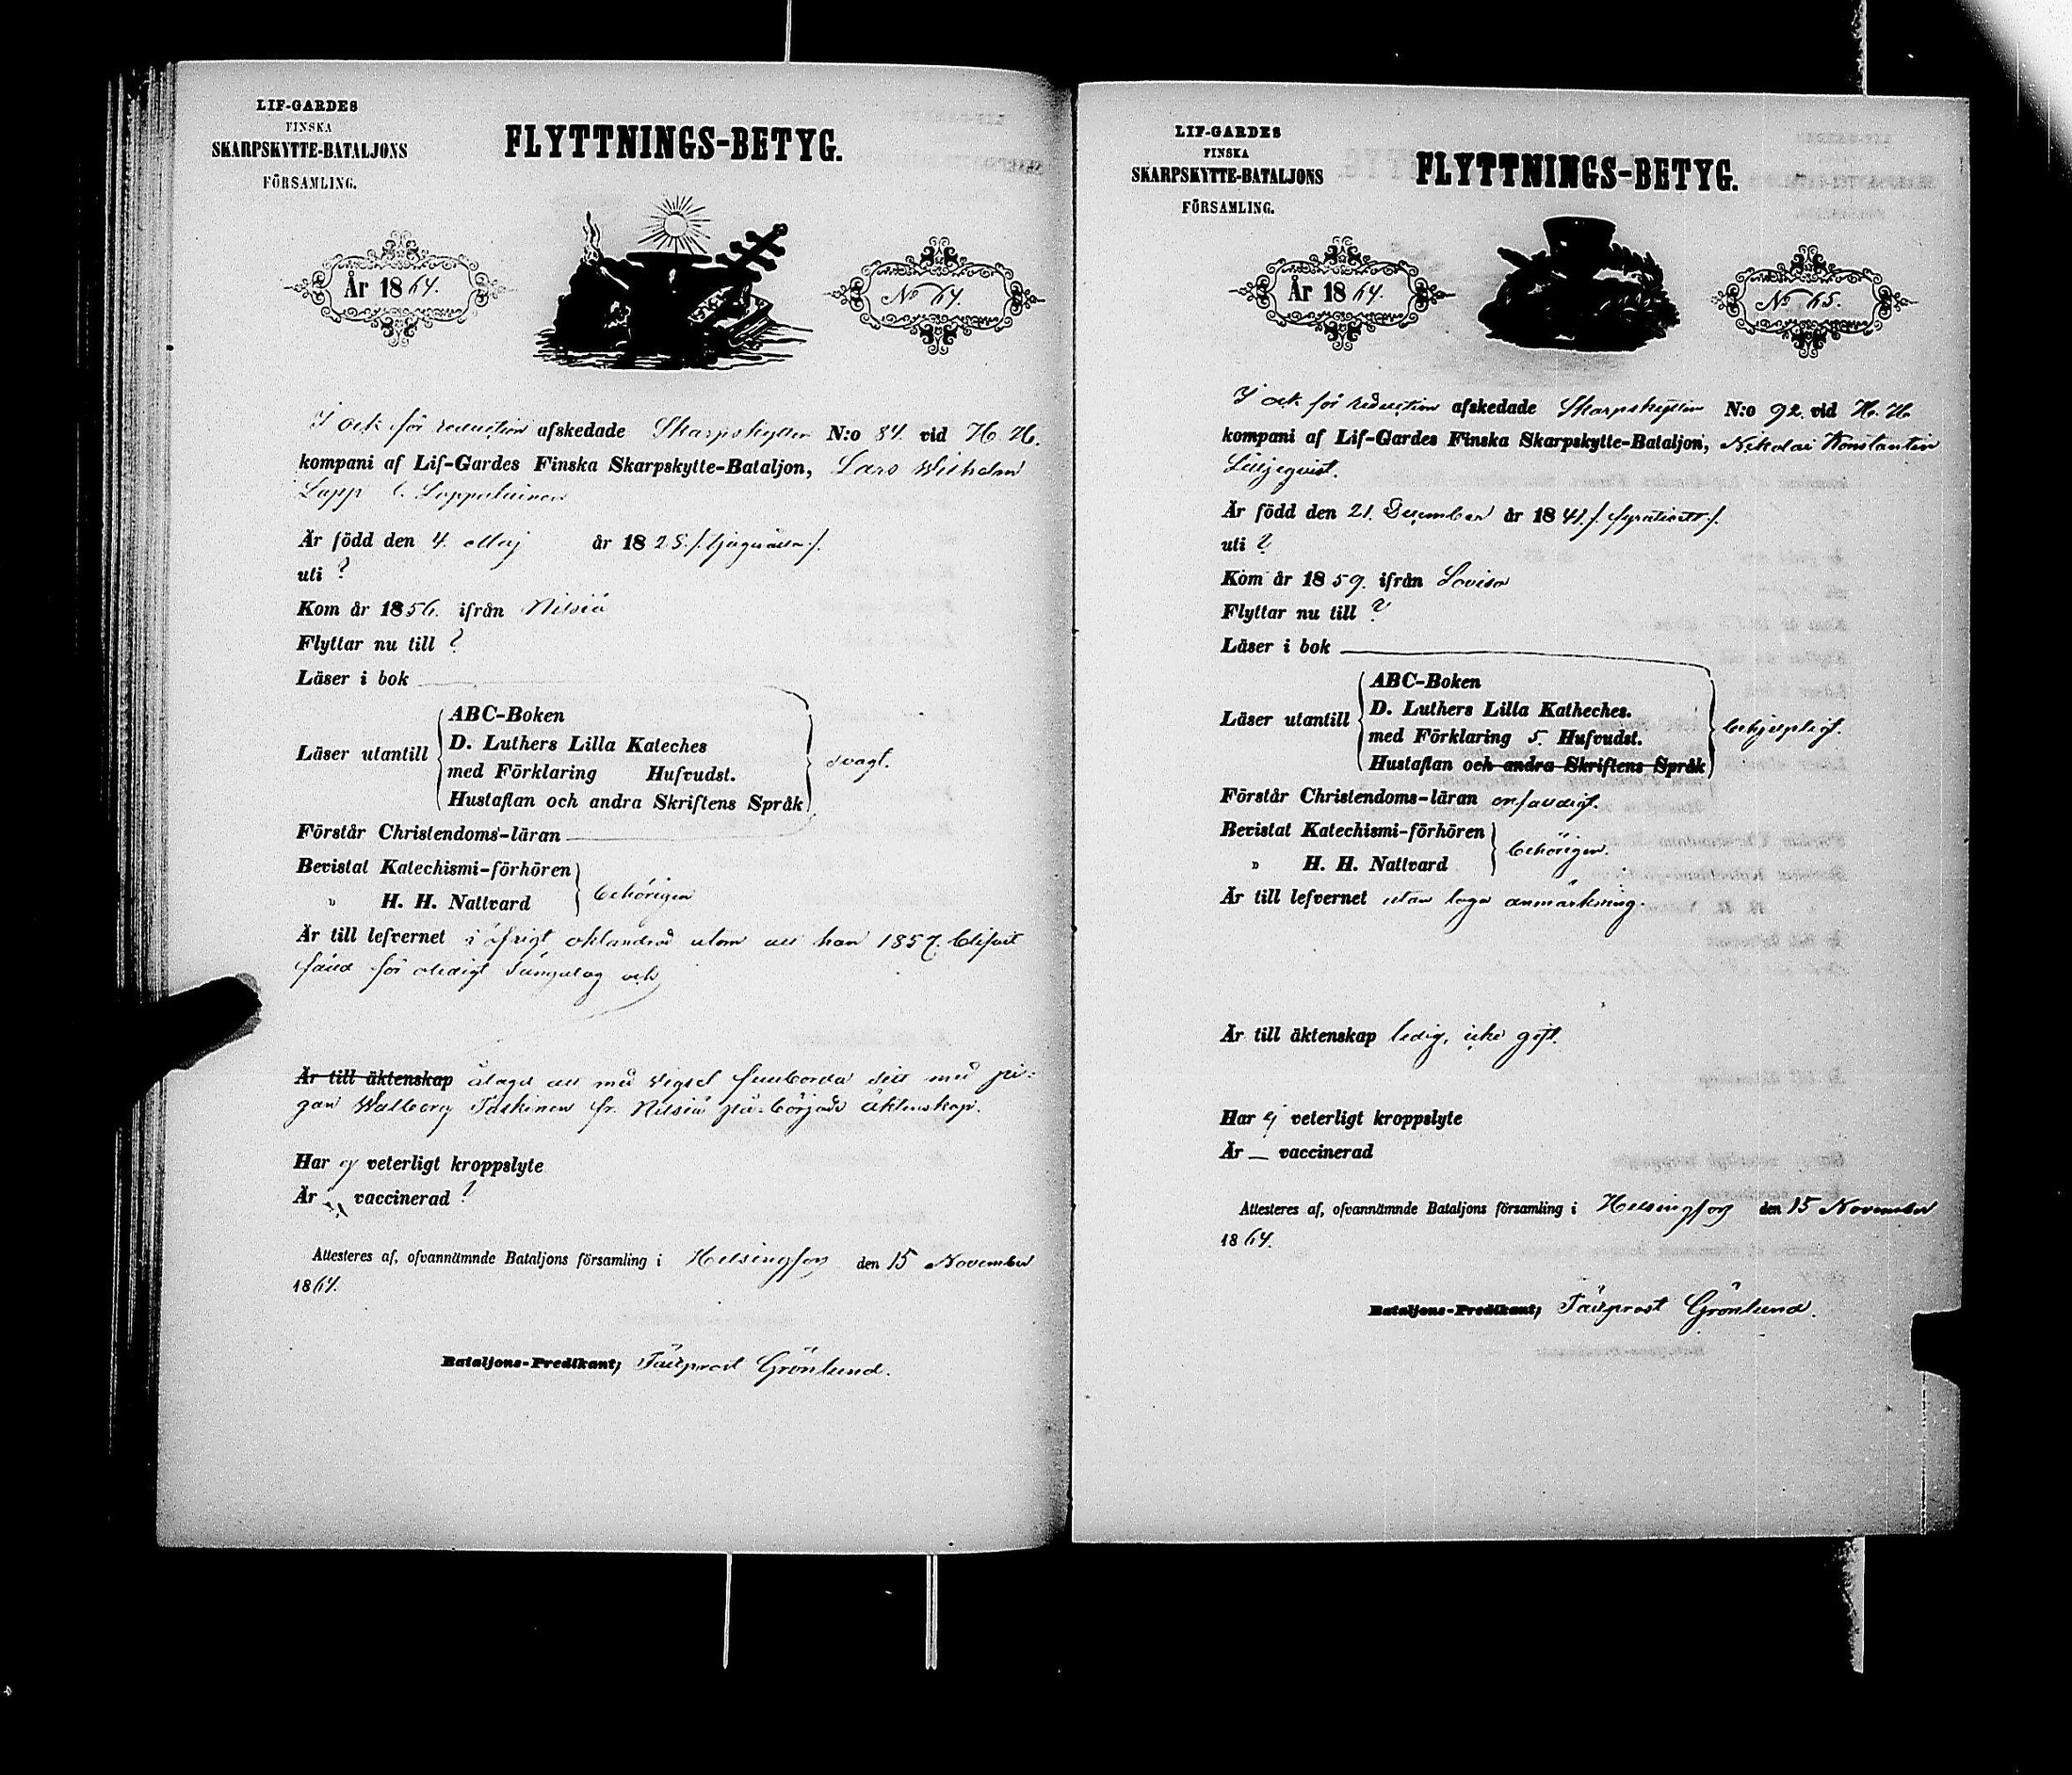 LIF-GARDES
FINSKA
SKARPSKYTTE-BATALJONS
FÖRSAMLING.
FLYTTNINGS-BETYG.
År 1864.
No 64.
I och för reduction afskedade Skarpskytten N:o 84. vid H. H.
kompani af Lif-Gardes Finska Skarpskytte-Bataljon, Lars Wilhelm
Lapp l. Lappalainen
Är född den 4. Maj år 1828./. tjuguåtta ./.
uti ?
Kom år 1856. ifrån Nilsiä
Flyttar nu till ?
Läser i bok
Läser utantill
ABC-Boken
D. Luthers Lilla Kateches
med Förklaring Hufvudst.
Hustaflan och andra Skriftens Språk
svagt.
Förstår Christendoms-läran
Bevistat Katechismi-förhören
" H. H. Nattvard
behörigen
Är till lefvernet i öfrigt oklandrad utom att han 1857. blifvit
fäld för oledigt Sängelag och
Är till äktenskap ålagd att med vigsel fullborda sitt med pi-
gan Walborg Taskinen fr. Nilsiä på-började äktenskap.
Har ej veterligt kroppslyte
Är vaccinerad ?
Attesteres af, ofvannämnde Bataljons församling i Helsingfors den 15 November
1864.
Bataljons-Predikant, Fältprost Grönlund.
LIF-GARDES
FINSKA
SKARPSKYTTE-BATALJONS
FÖRSAMLING.
FLYTTNINGS-BETYG.
År 1864.
No 65.
I och för reduction afskedade Skarpskytten N:o 92. vid H. H.
kompani af Lif-Gardes Finska Skarpskytte-Bataljon, Nikolai Konstantin
Liljeqvist.
Är född den 21. December år 1841./. fyratioett ./.
uti ?
Kom år 1859. ifrån Lovisa
Flyttar nu till ?
Läser i bok
Läser utantill
ABC-Boken
D. Luthers Lilla Katheches.
med Förklaring 5. Hufvudst.
Hustaflan och andra Skriftens Språk
behjelpligt.
Förstår Christendoms-läran enfaldigt.
Bevistat Katechismi-förhören
" H. H. Nattvard
behörigen.
Är till lefvernet utan laga anmärkning.
Är till äktenskap ledig, icke gift.
Har ej veterligt kroppslyte
Är — vaccinerad
Attesteres af, ofvannämnde Bataljons församling i Helsingfors den 15 November
1864.
Bataljons-Predikant, Fältprost Grönlund.